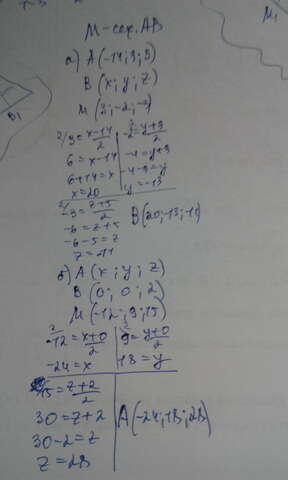 M₁
B₁
M - сер. AB
а) A (-14; 9; 5)
B (x; y; z)
M (3; -2; -3)
²/3 = x-14/2
²/-2 = y+9/2
6 = x-14
-4 = y+9
6+14 = x
-4-9 = y
x = 20
y = -13
²/-3 = z+5/2
B (20; -13; -11)
-6 = z+5
-6-5 = z
z = -11
б) A (x; y; z)
B (0; 0; 2)
M (-12; 9; 15)
²/-12 = x+0/2
²/9 = y+0/2
-24 = x
18 = y
15 = z+2/2
30 = z+2
A (-24; 18; 28)
30-2 = z
z = 28